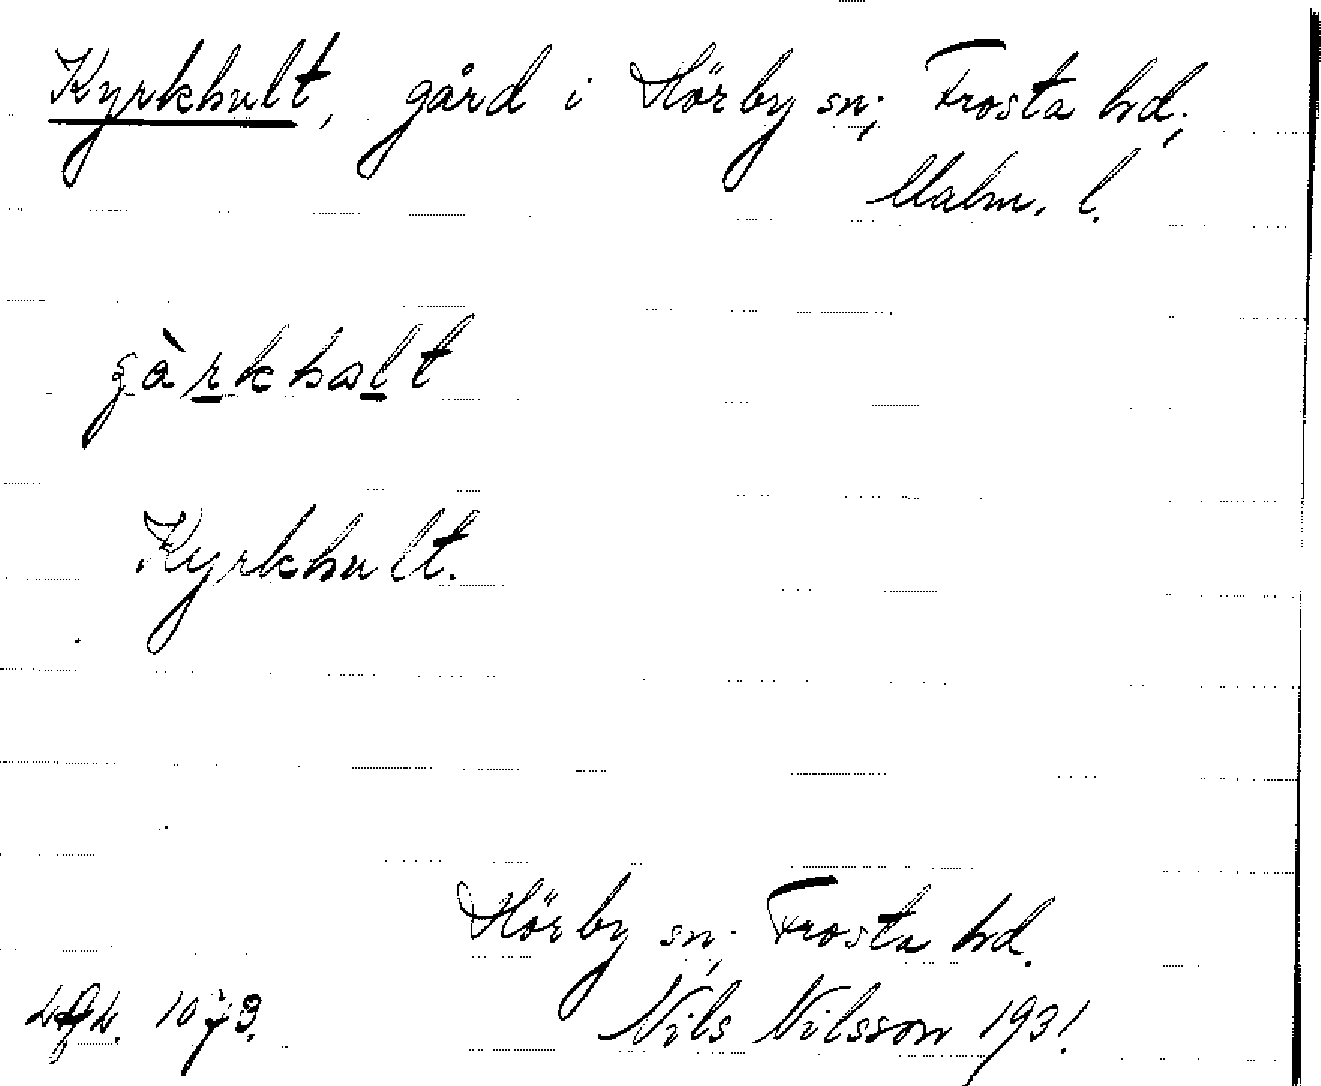 Kyrkhult, gård i Hörby sn; Frosta hd;
Malm. l.
Kyrkhult.
Hörby sn; Frosta hd.
Nils Nilsson 1931